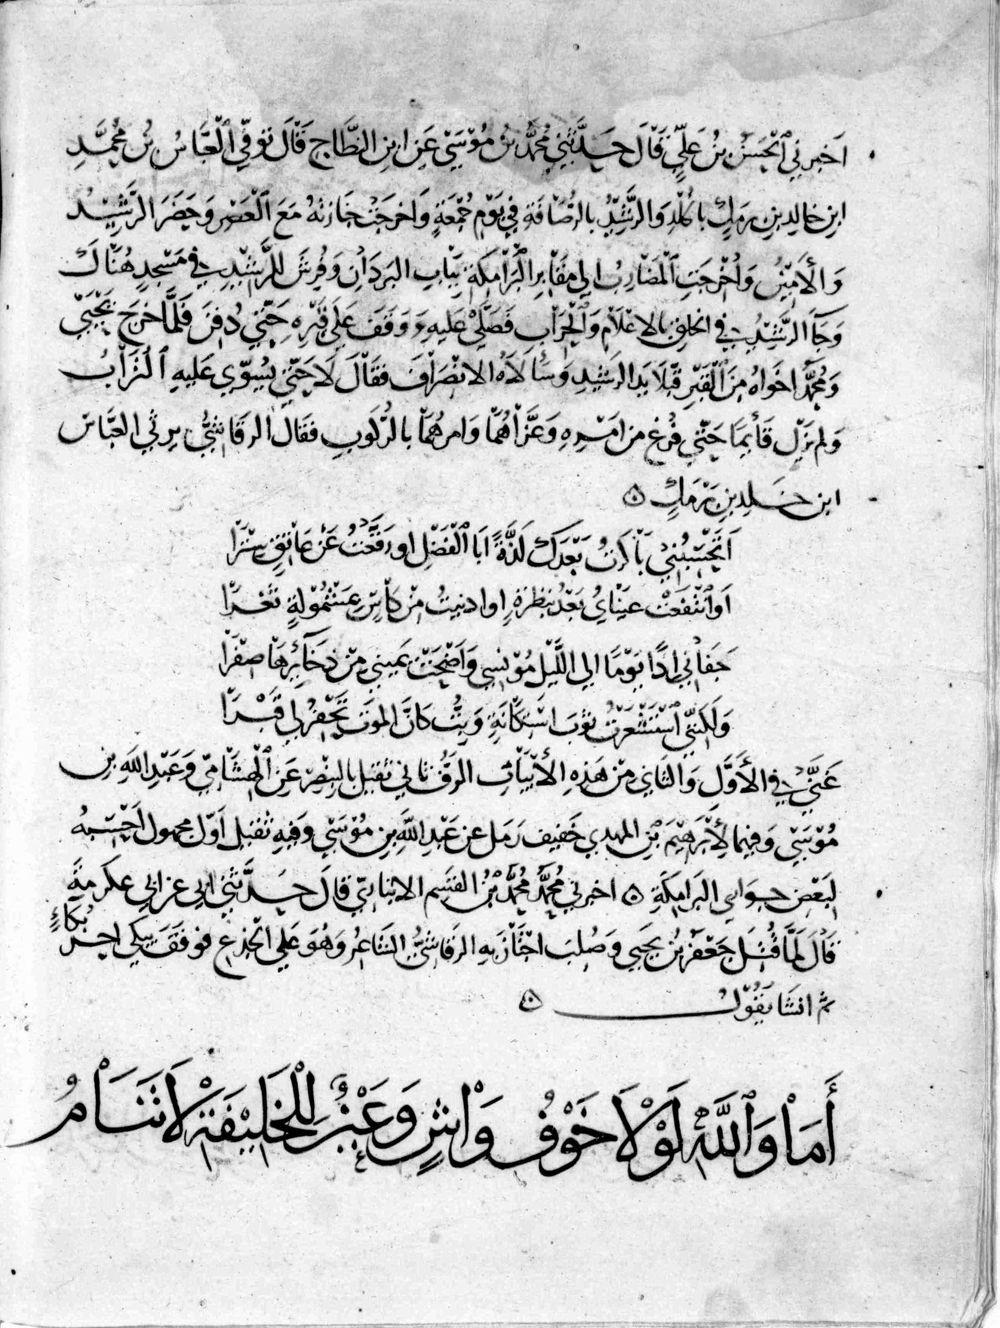 اخبرني الحسن بن علي قال حدثني محمد بن موسى عن ابن النطاح قال توفي العباس بن محمد
ابن خالد بن برمك بالخلد والرشيد بالرصافة في يوم جمعة واخرجت جنازته مع العصر وحضر الرشيد
والأمين واخرجت المضارب الى مقابر البرامكة بباب البردان وفرش للرشيد في مسجد هناك
وجا الرشيد في الخلق بالاعلام والحراب فصلى عليه ووقف على قبره حتى دفن فلما خرج يحيى
ومحمد اخواه من القبر قبلا يد الرشيد وسألاه الانصراف فقال لا حتى يسوى عليه التراب
ولم يزل قائما حتى فرغ من امره وعزاهما وامرهما بالركوب فقال الرقاشي يرثي العباس
ابن خلد بن برمك
أتحسبني باكرت بعدك لذة ابا الفضل او رفعت عن عاتق سترا
او انتفعت عيناي بعد بنظرة او ادنيت من كأس بمشمولة ثغرا
جفاني إذا يوما الى الليل مونسي واضحت يميني من ذخائرها صفرا
ولكنني استشعرت ثوب استكانة وبت كان الموت يحفر لي قبرا
غنى في الأول والثاني من هذه الأبيات الرف ثاني ثقيل بالبنصر عن الهشامي وعبد الله بن
موسى وفيهما لإبرهيم بن المهدي خفيف رمل عن عبد الله بن موسى وفيه ثقيل اول مجهول احسبه
لبعض جواري البرامكة اخبرني محمد بن القسم الانباري قال حدثني ابي عن ابي عكرمة
قال لما قتل جعفر بن يحيى وصلب اجتاز به الرقاشي الشاعر وهو على الجذع فوقف يبكي احر بكاء
ثم انشا يقول
أما والله لولا خوف واش وعين للخليفة لا تنام